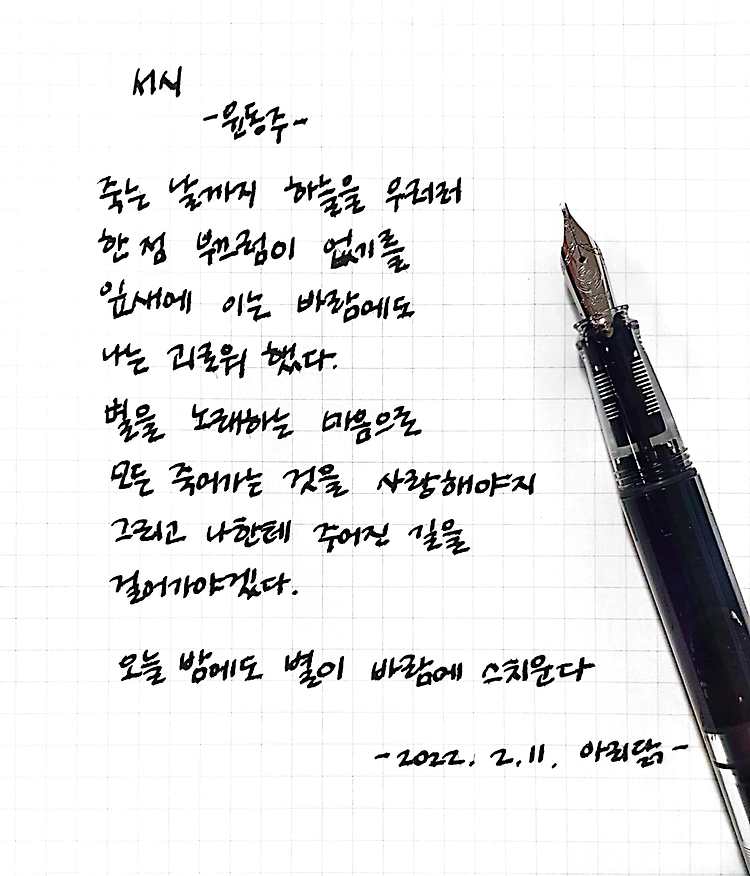 서시
-윤동주-
죽는 날까지 하늘을 우러러
한 점 부끄럼이 없기를
잎새에 이는 바람에도
나는 괴로워 했다.
별을 노래하는 마음으로
모든 죽어가는 것을 사랑해야지
그리고 나한테 주어진 길을
걸어가야겠다.
오늘 밤에도 별이 바람에 스치운다
-2022. 2.11. 아리닭-